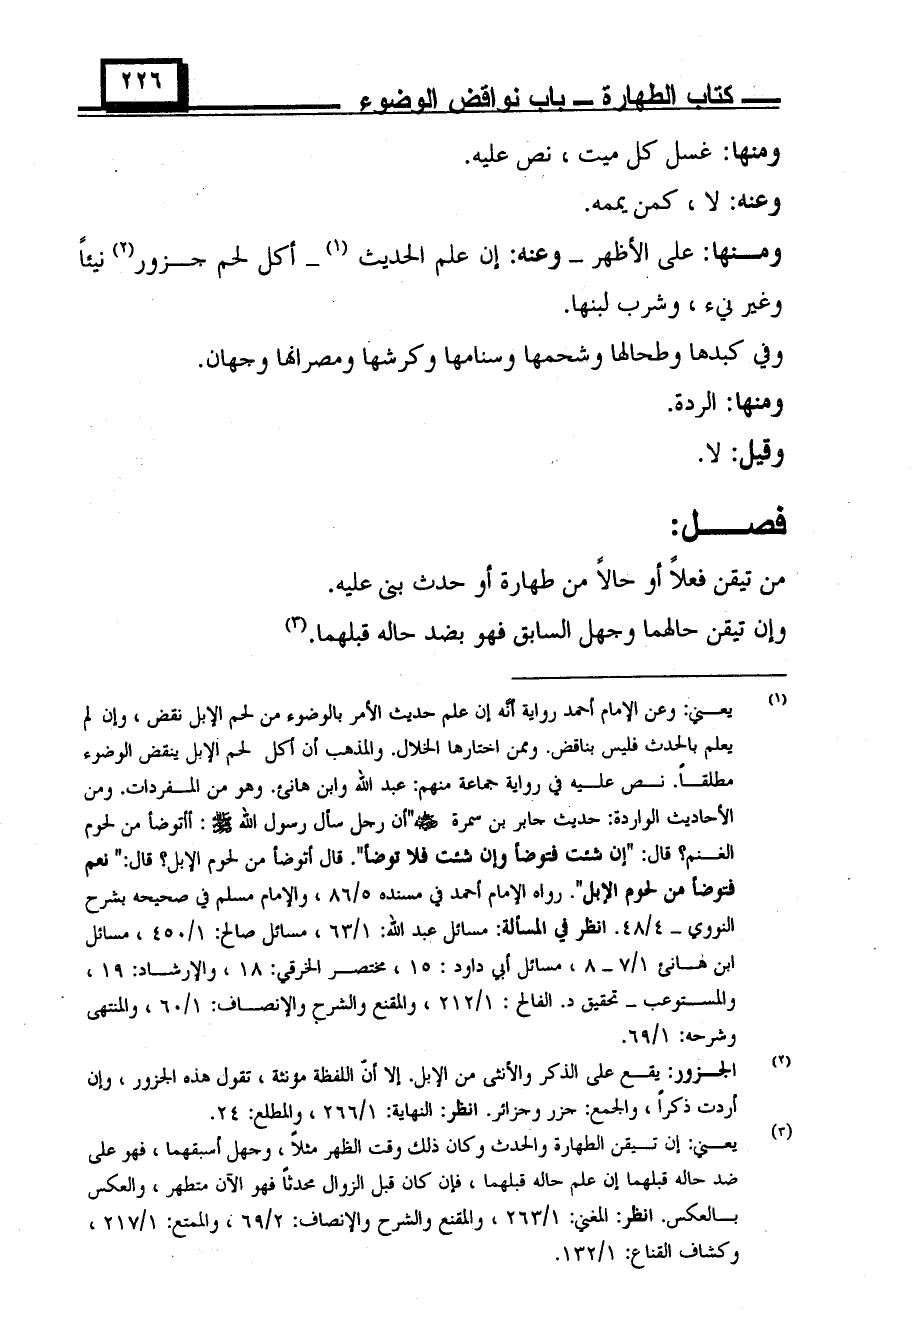 كتاب الطهارة ــ باب نواقض الوضوء
٢٢٦
ومنها: غسل كل ميت ، نص عليه.
وعنه: لا ، كمن يممه.
ومـــنها: على الأظهر ــ وعنه: إن علم الحديث (١) ــ أكل لحم جـــزور(٢) نيئاً
وغير نيء ، وشرب لبنها.
وفي كبدها وطحالها وشحمها وسنامها وكرشها ومصرانها وجهان.
ومنها: الردة.
وقيل: لا.
فصـــــل:
من تيقن فعلاً أو حالاً من طهارة أو حدث بنى عليه.
وإن تيقن حالهما وجهل السابق فهو بضد حاله قبلهما.(٣)
(١) يعـــني: وعن الإمام أحمد رواية أنّه إن علم حديث الأمر بالوضوء من لحم الإبل نقض ، وإن لم
يعلم بالحدث فليس بناقض. وممن اختارها الخلال. والمذهب أن أكل لحم الإبل ينقض الوضوء
مطلقـــاً. نـــص علـــيه في رواية جماعة منهم: عبد الله وابن هانئ. وهو من المـــفردات. ومن
الأحاديث الواردة: حديث جابر بن سمرة ﷺ "أن رجل سأل رسول الله ﷺ : أأتوضأ من لحوم
الغـــنم؟ قال: "إن شئت فتوضأ وإن شئت فلا توضأ". قال أتوضأ من لحوم الإبل؟ قال:" نعم
فتوضأ من لحوم الإبل". رواه الإمام أحمد في مسنده ٨٦/٥ ، والإمام مسلم في صحيحه بشرح
النووي ــ ٤٨/٤. انظر في المسألة: مسائل عبد الله: ٦٣/١ ، مسائل صالح: ٤٥٠/١ ، مسائل
ابن هـــانئ ٧/١ ــ ٨ ، مسائل أبي داود : ١٥ ، مختصـــر الخرقي: ١٨ ، والإرشـــاد: ١٩ ،
والمســـتوعب ــ تحقيق د. الفالح : ٢١٢/١ ، والمقنع والشرح والإنصـــاف: ٦٠/١ ، والمنتهى
وشرحه: ٦٩/١.
(٢) الجـــزور: يقـــع على الذكر والأنثى من الإبل. إلا أنّ اللفظة مؤنثة ، تقول هذه الجزور ، وإن
أردت ذكراً ، والجمع: جزر وجزائر. انظر: النهاية: ٢٦٦/١ ، والمطلع: ٢٤.
(٣) يعـــني: إن تـــيقن الطهارة والحدث وكان ذلك وقت الظهر مثلاً ، وجهل أسبقهما ، فهو على
ضد حاله قبلهما إن علم حاله قبلهما ، فإن كان قبل الزوال محدثاً فهو الآن متطهر ، والعكس
بـــالعكس. انظر: المغني: ٢٦٣/١ ، والمقنع والشرح والإنصاف: ٦٩/٢ ، والممتع: ٢١٧/١ ،
وكشاف القناع: ١٣٢/١.